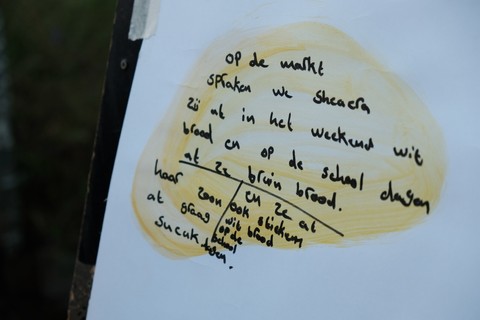 op de markt
spraken we Sheaera
Zij at in het weekend wit
brood en op de school dagen
at ze bruin brood.
haar zoon
at graag
snack
en ze at
ook stiekem
wit brood
op de
school
dagen.